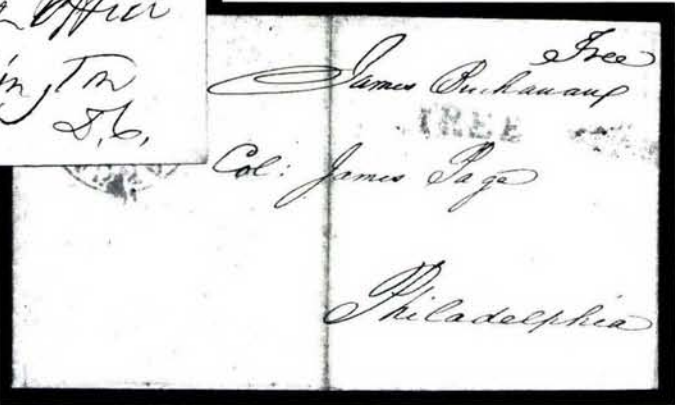 Office
D.C.
Free
James Buchanan
FREE
Col: James Page
Philadelphia